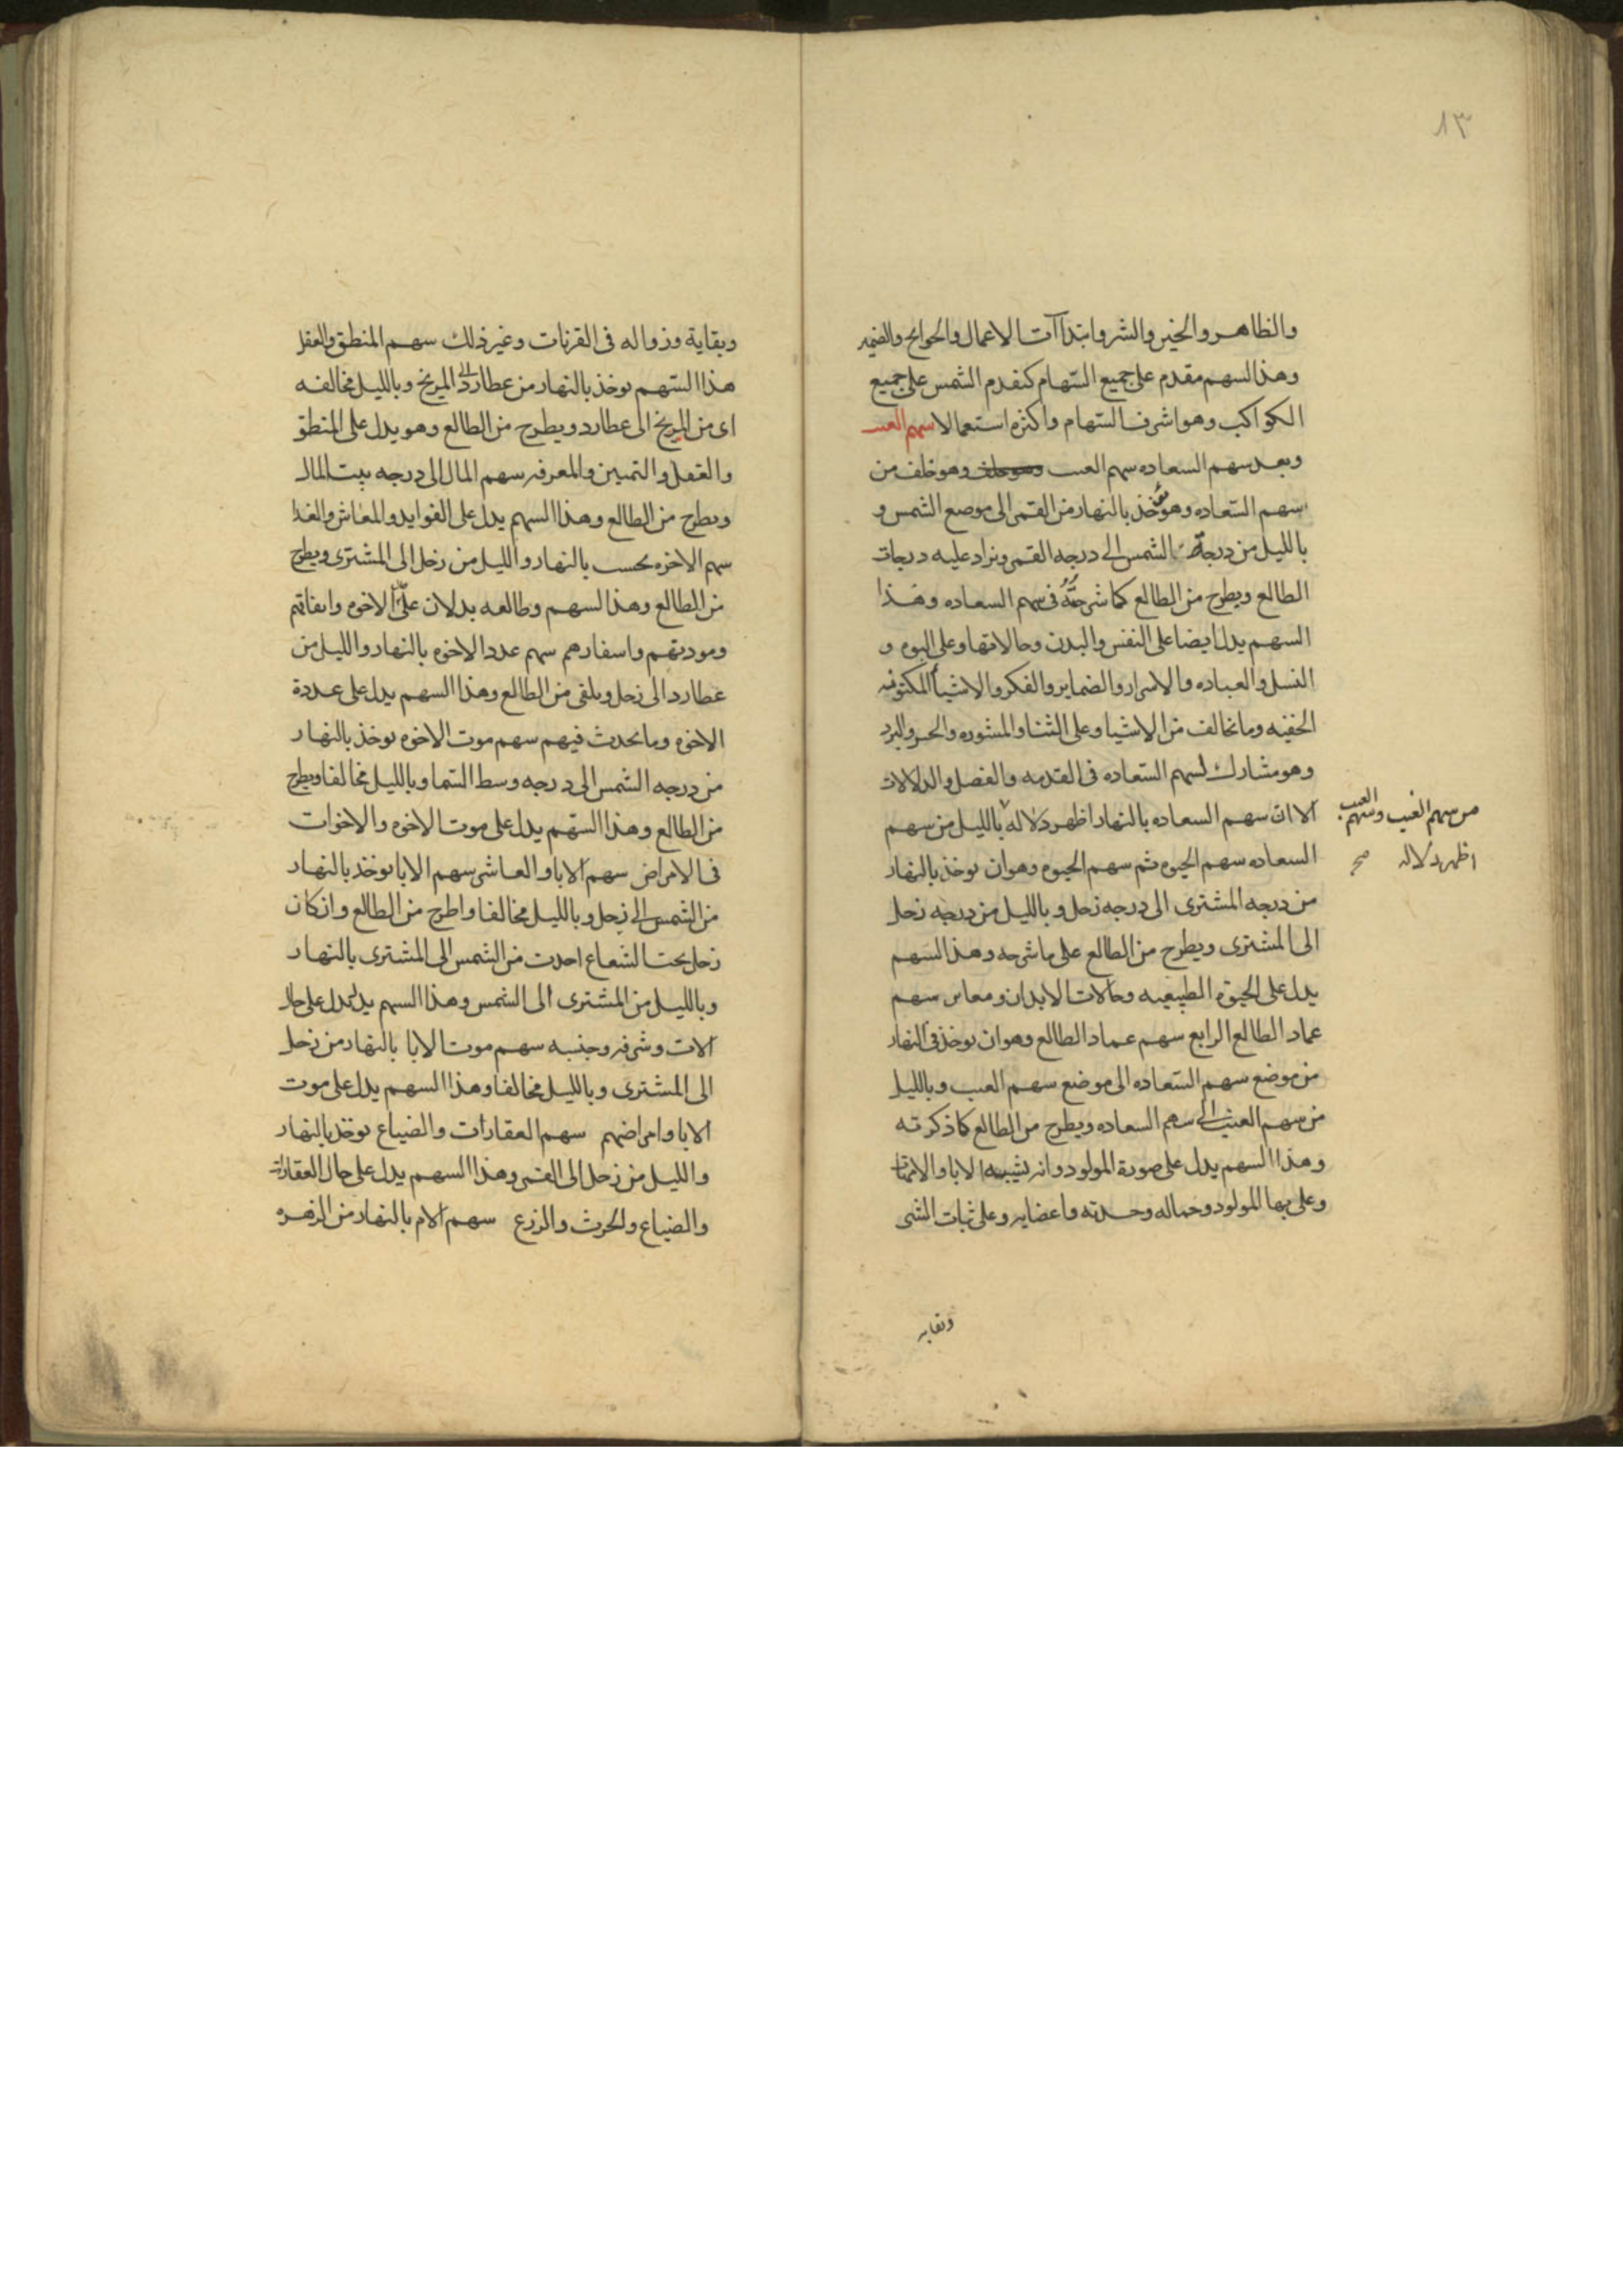 ٨٣
والظاهر والخير والشر وابتداآت الاعمال والحوايج والضمير
وهذا لسهم مقدم على جميع السهام كتقدم الشمس على جميع
الكواكب وهو اشرف السهام واكثره استعمالا سهم الغيب
وبعد سهم السعاده سهم الغيب وهو خلف من
سهم السعاده وهو يؤخذ بالنهار من القمر الى موضع الشمس و
بالليل من درجة الشمس الى درجه القمر ويزاد عليه درجات
الطالع ويطرح من الطالع كما شرحته فى سهم السعاده وهذا
السهم يدل ايضا على النفس والبدن وحالاتها وعلى النبوه و
النسل والعباده والاسرار والضماير والفكر والاشياء المكنونه
الخفيه وما تخالف من الاشيا وعلى الثنا والمشوره والحر والبرد
وهو مشارك لسهم السعاده فى القدمه والفضل والدلالات
الا ان سهم السعاده بالنهار اظهر دلاله بالليل من سهم
من سهم الغيب وسهم الغيب
اظهر دلاله صح
السعاده سهم الحيوه ثم سهم الحيوه وهو ان يوخذ بالنهار
من درجه المشترى الى درجه زحل وبالليل من درجه زحل
الى المشترى ويطرح من الطالع على ما شرحه وهذا السهم
يدل على الحيوه الطبيعيه وحالات الابدان ومعاش سهم
عماد الطالع الرابع سهم عماد الطالع وهو ان يوخذ فى النهار
من موضع سهم السعاده الى موضع سهم الغيب وبالليل
من سهم الغيب الى سهم السعاده ويطرح من الطالع كما ذكرته
وهذا السهم يدل على صورة المولود وانه يشبه الابا والامهات
وعلى بها المولود وجماله وحدته واعضايه وعلى ثبات الشى
وبقايه
وبقاية وزواله فى القرنات وغير ذلك سهم المنطق والعقل
هذا السهم يوخذ بالنهار من عطارد الى المريخ وبالليل مخالفه
اى من المريخ الى عطارد ويطرح من الطالع وهو يدل على المنطق
والعقل والتميين والمعرفه سهم المال الى درجه بيت المال
ويطرح من الطالع وهذا السهم يدل على الفوايد والمعاش والغذا
سهم الاخره يحسب بالنهار والليل من زحل الى المشترى ويطرح
من الطالع وهذا لسهم وطالعه يدلان على الاخوه واتفاقهم
ومودتهم واسفارهم سهم عدد الاخوه بالنهار والليل من
عطارد الى زحل ويلقى من الطالع وهذا السهم يدل على عددة
الاخوه وما يحدث فيهم سهم موت الاخوه يوخذ بالنهار
من درجه الشمس الى درجه وسط السما وبالليل مخالفا ويطرح
من الطالع وهذا السهم يدل على موت الاخوه والاخوات
فى الامراض سهم الابا والعاشر سهم الابا يوخذ بالنهار
من الشمس الى زحل وبالليل مخالفا واطرح من الطالع وان كان
زحل تحت الشعاع اخذت من الشمس الى المشترى بالنهار
وبالليل من المشترى الى الشمس وهذا السهم يدل على حال
الاب وشرفه وجنسه سهم موت الابا بالنهار من زحل
الى المشترى وبالليل مخالفا وهذا السهم يدل على موت
الابا وامراضهم سهم العقارات والضياع يوخذ بالنهار
والليل من زحل الى القمر وهذا السهم يدل على حال العقارات
والضياع والحرث والزرع سهم الام بالنهار من الزهره